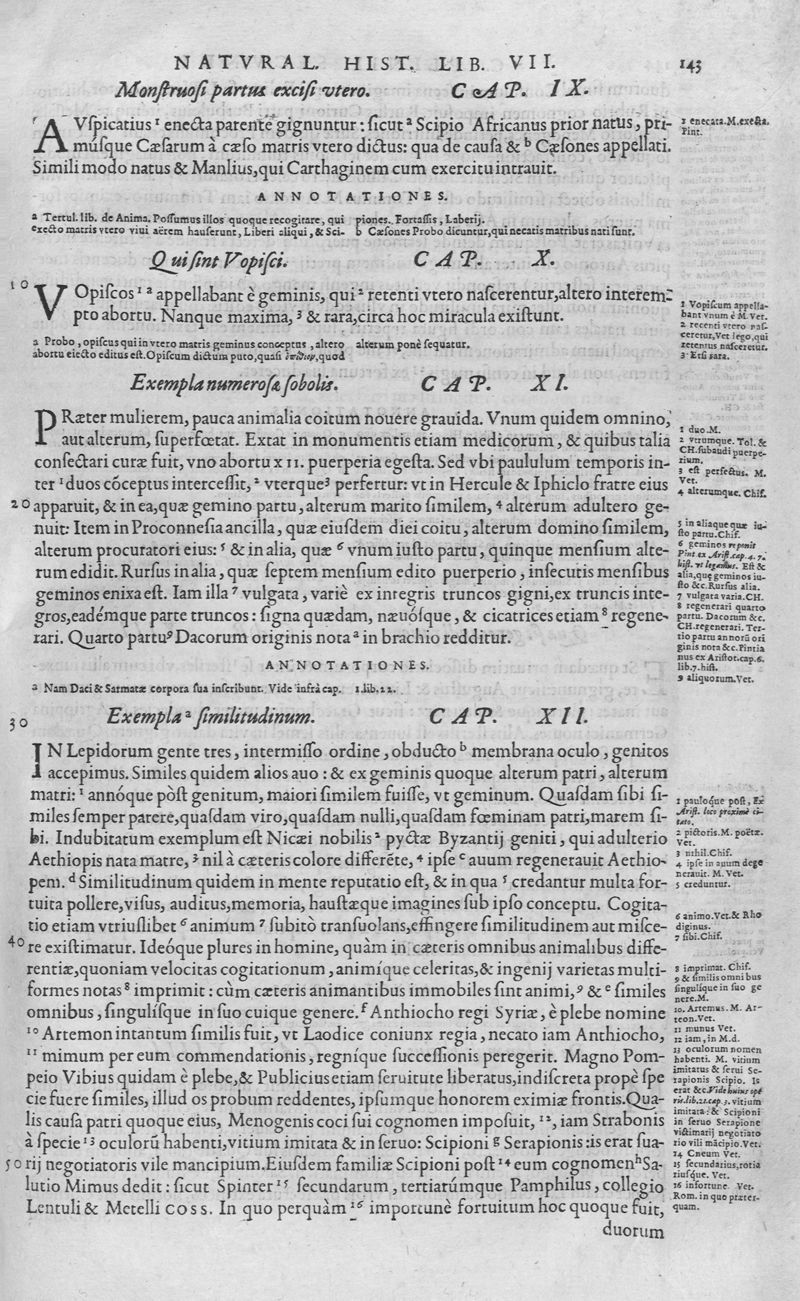 NATVRAL. HIST. LIB. VII. 143
Monstruosi partus excisi vtero. CAP. IX.
AVspicatius¹ enecta parente gignuntur: sicut ᵃ Scipio Africanus prior natus, pri-
músque Cæsarum à cæso matris vtero dictus: qua de causa & ᵇ Cæsones appellati.
Simili modo natus & Manlius, qui Carthaginem cum exercitu intrauit.
ANNOTATIONES.
a Tertul. lib. de Anima. Possumus illos quoque recogitare, qui
execto matris vtero viui aërem hauserunt, Liberi aliqui, & Sci-
piones. Fortassis, Laberij.
b Cæsones Probo dicuntur, qui necatis matribus nati sunt.
Qui sint Vopisci. CAP. X.
10
VOpiscos¹ ᵃ appellabant è geminis, qui ² retenti vtero nascerentur, altero interem-
pto abortu. Nanque maxima, ³ & rara, circa hoc miracula existunt.
a Probo, opiscus qui in vtero matris geminus conceptus, altero
abortu eiecto editus est. Opiscum dictum puto, quasi quod
alterum ponè sequatur.
Exempla numerosæ sobolis. CAP. XI.
PRæter mulierem, pauca animalia coitum nouere grauida. Vnum quidem omnino,
aut alterum, superfœtat. Extat in monumentis etiam medicorum, & quibus talia
consectari curæ fuit, vno abortu XII. puerperia egesta. Sed vbi paululum temporis in-
ter ¹ duos cõceptus intercessit, ² vterque³ perfertur: vt in Hercule & Iphiclo fratre eius
20 apparuit, & in ea, quæ gemino partu, alterum marito similem, ⁴ alterum adultero ge-
nuit: Item in Proconnesia ancilla, quæ eiusdem diei coitu, alterum domino similem,
alterum procuratori eius: ⁵ & in alia, quæ ⁶ vnum iusto partu, quinque mensium alte-
rum edidit. Rursus in alia, quæ septem mensium edito puerperio, insecutis mensibus
geminos enixa est. Iam illa ⁷ vulgata, variè ex integris truncos gigni, ex truncis inte-
gros, eadémque parte truncos: signa quædam, næuósque, & cicatrices etiam ⁸ regene-
rari. Quarto partu⁹ Dacorum originis nota ᵃ in brachio redditur.
ANNOTATIONES.
a Nam Daci & Sarmatæ corpora sua inscribunt. Vide infrà cap. 1. lib. 22.
30 Exempla ᵃ similitudinum. CAP. XII.
IN Lepidorum gente tres, intermisso ordine, obducto ᵇ membrana oculo, genitos
accepimus. Similes quidem alios auo: & ex geminis quoque alterum patri, alterum
matri: ¹ annóque pòst genitum, maiori similem fuisse, vt geminum. Quasdam sibi si-
miles semper parere, quasdam viro, quasdam nulli, quasdam fœminam patri, marem si-
bi. Indubitatum exemplum est Nicæi nobilis ² pyctæ Byzantij geniti, qui adulterio
Aethiopis nata matre, ³ nil à cæteris colore differẽte, ⁴ ipse ᶜ auum regenerauit Aethio-
pem. ᵈ Similitudinum quidem in mente reputatio est, & in qua ⁵ credantur multa for-
tuita pollere, visus, auditus, memoria, haustæque imagines sub ipso conceptu. Cogita-
tio etiam vtriuslibet ⁶ animum ⁷ subitò transuolans, effingere similitudinem aut misce-
40 re existimatur. Ideóque plures in homine, quàm in cæteris omnibus animalibus diffe-
rentiæ, quoniam velocitas cogitationum, animíque celeritas, & ingenij varietas multi-
formes notas ⁸ imprimit: cùm cæteris animantibus immobiles sint animi, ⁹ & ᵉ similes
omnibus, singulísque in suo cuique genere. ᶠ Anthiocho regi Syriæ, è plebe nomine
¹⁰ Artemon intantum similis fuit, vt Laodice coniunx regia, necato iam Anthiocho,
¹¹ mimum per eum commendationis, regníque successionis peregerit. Magno Pom-
peio Vibius quidam è plebe, & Publicius etiam seruitute liberatus, indiscreta propè spe
cie fuere similes, illud os probum reddentes, ipsumque honorem eximiæ frontis. Qua-
lis causa patri quoque eius, Menogenis coci sui cognomen imposuit, ¹², iam Strabonis
à specie ¹³ oculorũ habenti, vitium imitata & in seruo: Scipioni ᵍ Serapionis: is erat sua-
50 rij negotiatoris vile mancipium. Eiusdem familiæ Scipioni post ¹⁴ eum cognomen ʰ Sa-
lutio Mimus dedit: sicut Spinter ¹⁵ secundarum, tertiarúmque Pamphilus, collegio
Lentuli & Metelli COSS. In quo perquàm ¹⁶ importunè fortuitum hoc quoque fuit,
duorum
1 enecata. M. exesta.
Pint.
1 Vopiscum appella-
bant vnum è M. Vet.
2 recenti vtero nas-
ceretur, Vet lego, qui
retentus nasceretur.
3 Etsi rara.
1 duo. M.
2 vtrumque. Tol. &
CH. subaudi puerpe-
rium.
3 est perfectus. M.
Vet.
4 alterumque. Chif.
5 in aliaque quæ iu-
sto partu. Chif.
6 geminos reponit
Pint ex Arist. cap. 4. 7.
hist. vt legamus. Est &
alia, quę geminos iu-
sto &c. Rursus alia.
7 vulgata varia. CH.
8 regenerari quarto
partu. Dacorum &c.
CH. regenerari. Ter-
tio partu annorũ ori
ginis nota &c. Pintia
nus ex Aristot. cap. 6.
lib. 7. hist.
9 aliquorum. Vet.
1 pauloque post, Ex
Arist. loco proximè ci-
tato.
2 pictoris. M. poëtæ.
Vet.
3 nihil. Chif.
4 ipse in auum dege
nerauit. M. Vet.
5 creduntur.
6 animo. Vet. & Rho
diginus.
7 sibi. Chif.
8 imprimat. Chif.
9 & similis omnibus
singulisque in suo ge
nere. M.
10. Artemus. M. Ar-
teon. Vet.
11 munus Vet.
12 iam, in M. d.
13 oculorum nomen
habenti. M. vitium
imitatus & serui Se-
rapionis Scipio. Is
erat &c. Vide huius opé
ris. lib. 21. cap. 3. vitium
imitata: & Scipioni
in seruo Serapione
victimarij negotiato
rio vili mãcipio. Vet.
14 Cneum Vet.
15 secundarius, totia
riusque. Vet.
16 infortune Vet.
Rom. in quo præter-
quam.